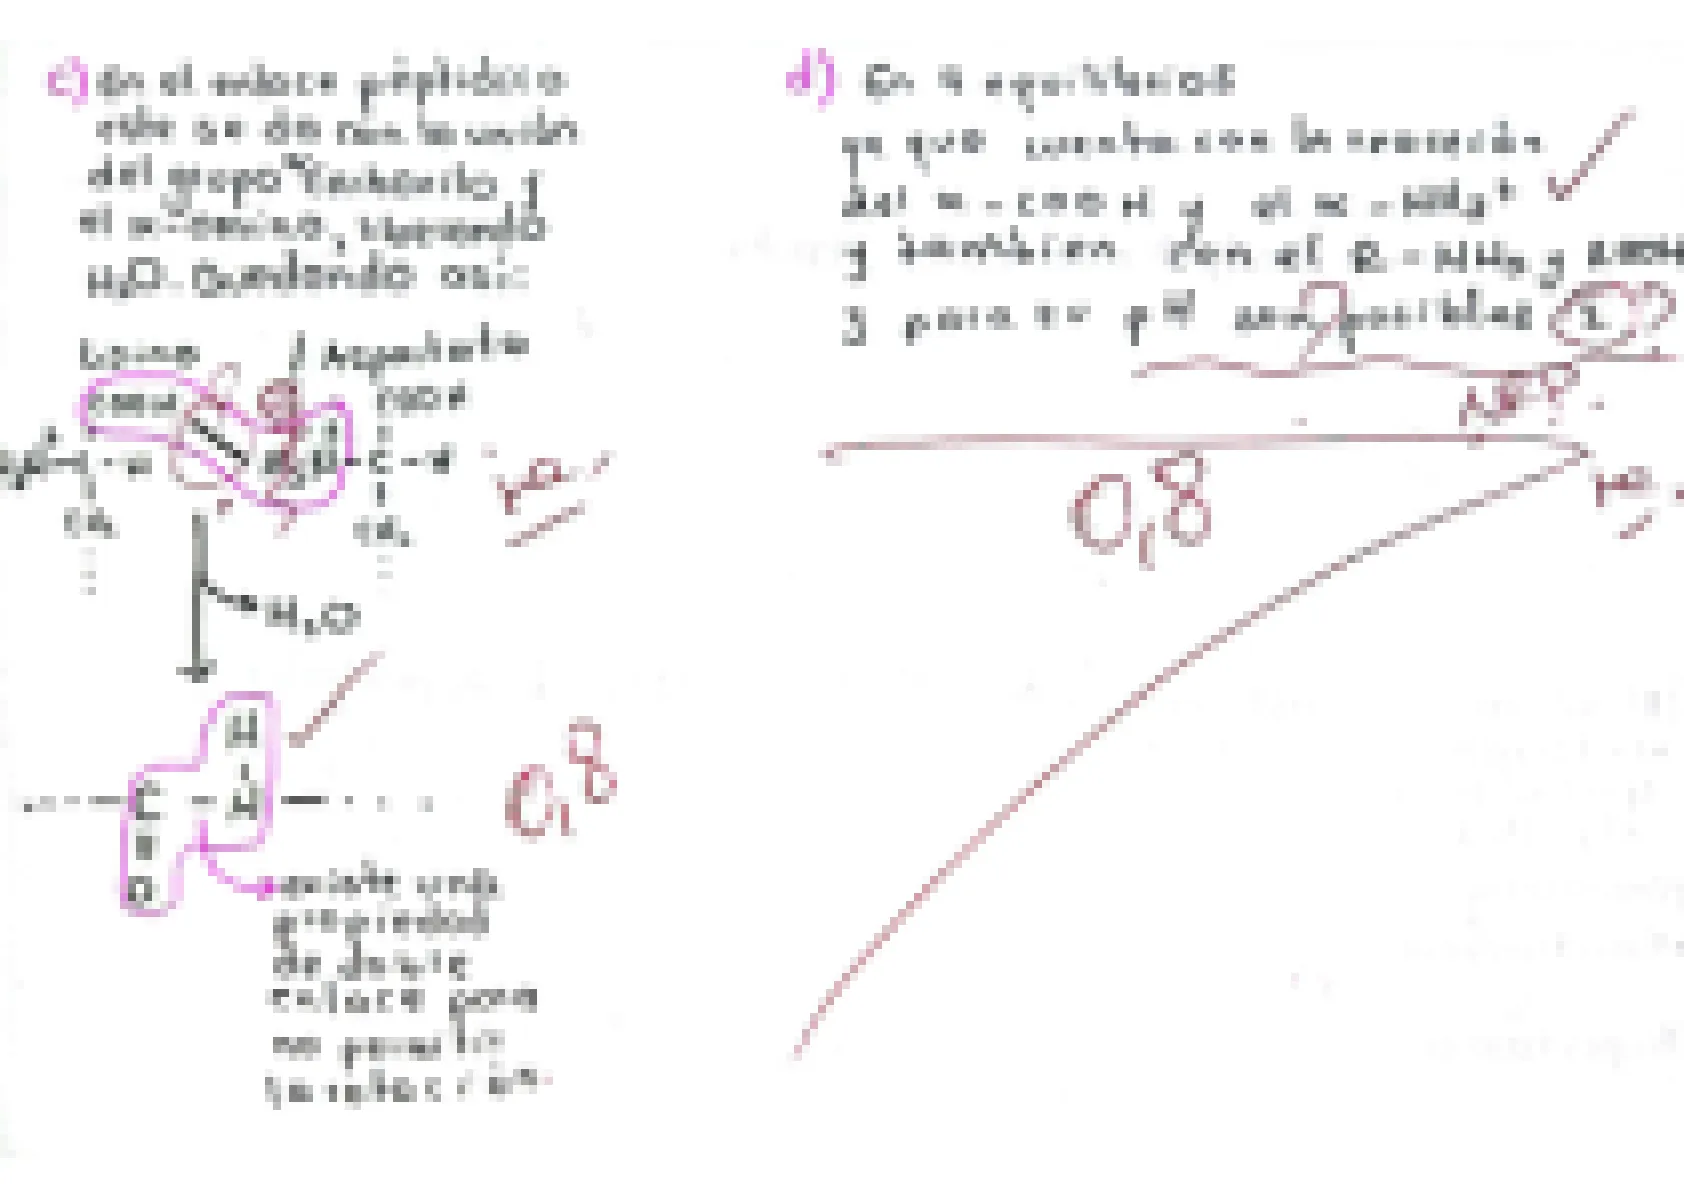 c) En el enlace péptidico
este se da con la unión
del grupo carboxilo y
el α-amino, liberando
H₂O. Quedando así:
Lisina
Aspartato
COOH
COOH
C - H
C - H
CH₂
CH₂
H₂O
H
C - N
O
0,8
existe una
propiedad
de doble
enlace para
no permitir
la rotación.
d) En 4 equilibrios
ya que cuenta con la
del α-COOH y el α-NH₃⁺
y tambien con el R-NH₃ y
y para su pH son posibles 2
0,8